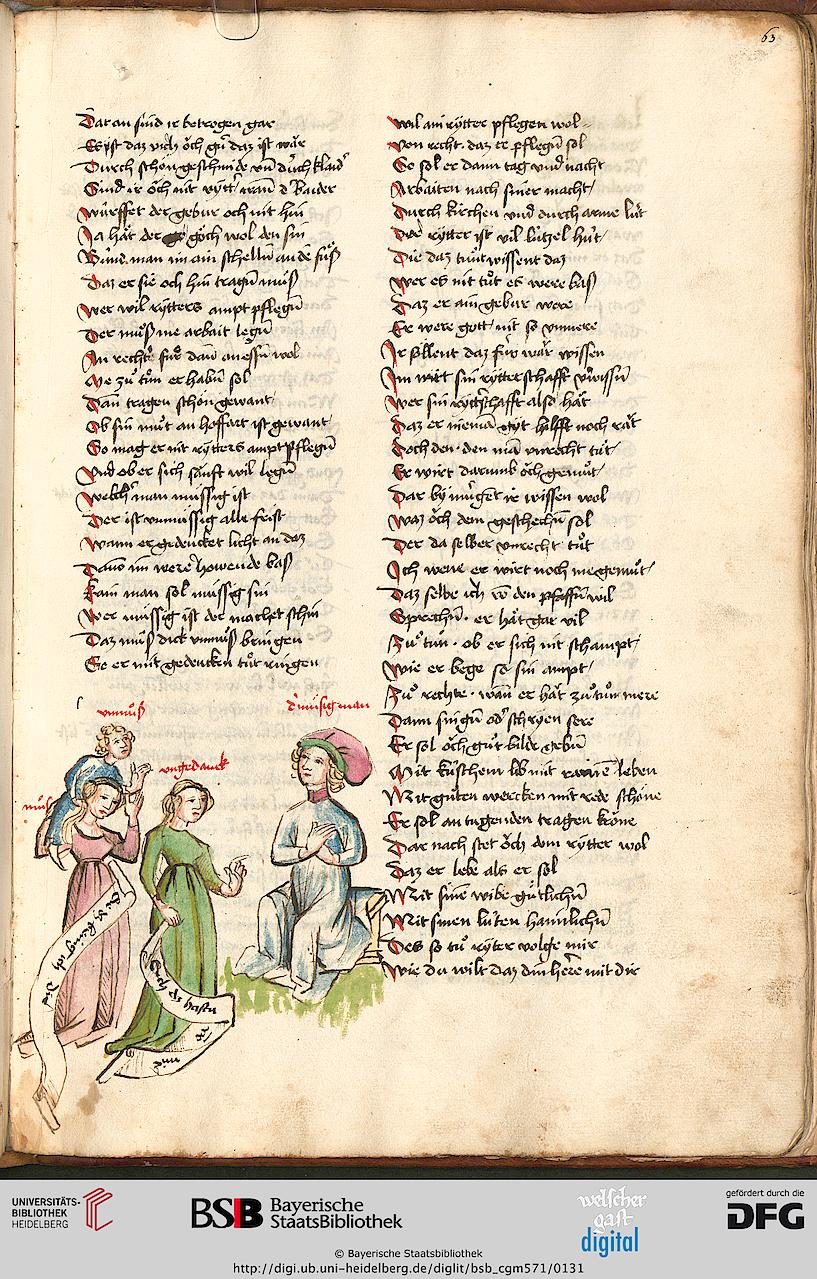 63
Dar an sind ir betrogen gar
Es ist daz vich och gůt daz ist war
Durch schön geschmide vnd durch klaid
Sind ir och nit rytt wann d Raider
würffet der gebur och nit hin
Ja hät der göch wol den sin
man im ain schelln an de füß
Daz er sie och hin tragn můß
wer wil rytters ampt pflegn
Der můß me arbait legn
An rechte für dann an essn wol
we zů tůn er habn sol
Dan tragen schön gewant
Ob sin můt an hoffart ist gewant
So mag er nit rytters ampt pflegn
Vnd ob er sich sanft wil legn
welch man mussig ist
Der ist vnmüssig alle frist
wann er gedencket licht an daz
im were howende baß
kain man sol müssig sin
wer müssig ist der machet schin
Daz müß dick vnmůß bringen
So er mit gedencken tůt ringen
wil ain rytter pflegen wol
von recht daz er pflegn sol
So sol er dann tag vnd nacht
Arbaiten nach siner macht
Durch kirchen vnd durch arme lüt
Der rytter ist vil lützel hüt
Die daz tůnt wissent daz
wer es nit tůt es were baß
Daz er ain gebur were
Er were gott nit so vnmere
Ir söllent daz für war wissen
Im wirt sin rytterschafft
wer sin ryttschafft also hät
Daz er nieman gyt hilff noch rät
Doch den den man vnrecht tůt
Er wirt darumb och gemüt
Dar by mügent ir wissen wol
waz och dem geschechn sol
Der da selber vnrecht tůt
Ich wene er wirt noch me gemüt
Daz selbe ich von den pfaffn wil
Sprechn er hät gar vil
Zů tůn ob er sich nit schampt
wie er bege so sin ampt
Zů rechte wan er hät zů tůn mere
Dann singn od schryen sere
Er sol och gůt bilde gebn
Mit küschem lib mit rainem leben
Mit gůten wercken mit rede schöne
Er sol an tugenden tragen kröne
Dar nach stet och dem rytter wol
Daz er lebe als er sol
Mit sinem wibe gůtlichn
Mit sinen lüten haimlichn
Des so tů ryter volge mir
wie du wilt daz din here mit dir
vnmůß
d müsig man
vngedanck
můß
zům
UNIVERSITÄTS-
BIBLIOTHEK
HEIDELBERG
BSB Bayerische
StaatsBibliothek
welscher
gast
digital
gefördert durch die
DFG
© Bayerische Staatsbibliothek
http://digi.ub.uni-heidelberg.de/diglit/bsb_cgm571/0131